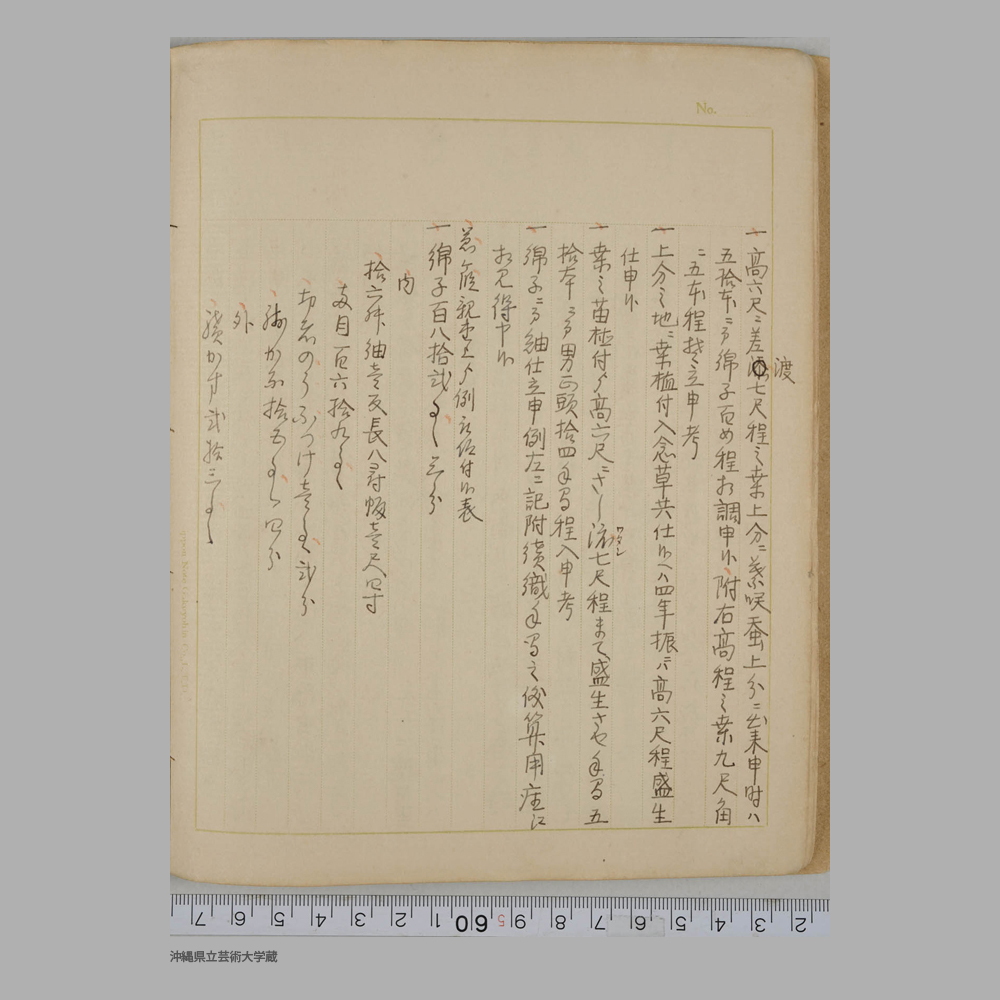 No.
一高六尺ニ差渡七尺程之桑上分ニ葉咲蚕上分ニ出来申時ハ
五拾本ニ而綿子百め程相調申候附右高程之桑九尺角
ニ五本程起立申考
一上分之地ニ桑植付入念草共仕候ヘハ四年振ニ高六尺程盛生
仕申候
一桑之苗植付高六尺ニさし渡七尺程まて盛生させ手間五
ワタシ
拾本ニ而男正頭拾四手間程入申考
一綿子ニ而紬仕立申例左ニ記附績織手間之儀算用座江
相見得申候
例被仰付候表
一綿子百八拾弐
内
拾六舛紬壱反長八尋幅壱尺四寸
斤目百六拾九
ふつけ壱 弐分
かな拾五 四分
外
績かす弐拾三
7 6 5 4 3 2 1 60 5 9 8 7 6 5 4 3 2
沖縄県立芸術大学蔵